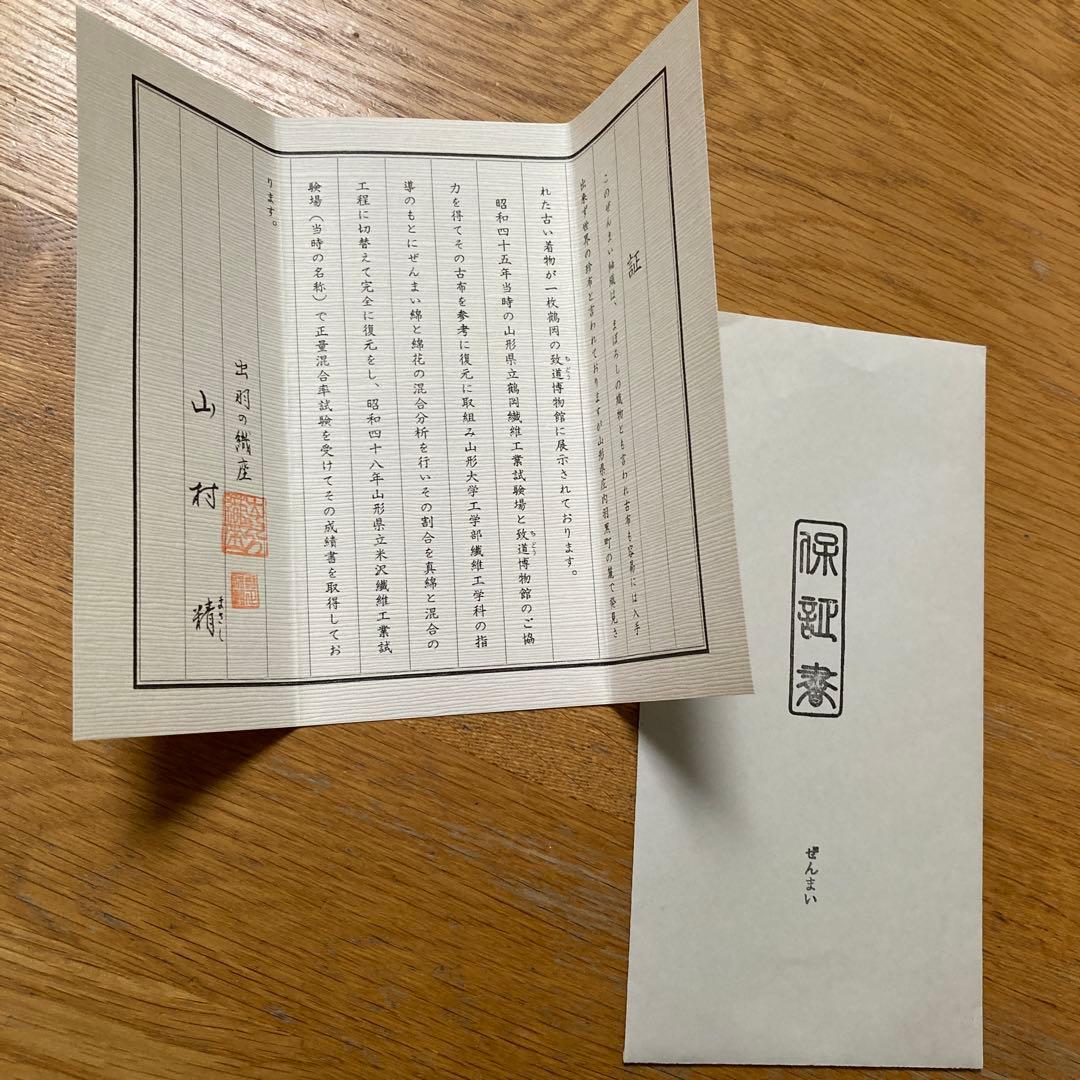 証
このぜんまい紬織は、まぼろしの織物とも言われ古布も容易には入手
出来ず世界の珍布と言われておりますが山形県庄内羽黒町の麓で発見さ
れた古い着物が一枚鶴岡の致道博物館に展示されております。
ちどう
昭和四十五年当時の山形県立鶴岡繊維工業試験場と致道博物館のご協
ちどう
力を得てその古布を参考に復元に取組み山形大学工学部繊維工学科の指
導のもとにぜんまい綿と綿花の混合分析を行いその割合を真綿と混合の
工程に切替えて完全に復元をし、昭和四十八年山形県立米沢繊維工業試
験場(当時の名称)で正量混合率試験を受けてその成績書を取得してお
ります。
出羽の織座
山村 精
まさし
保証書
ぜんまい